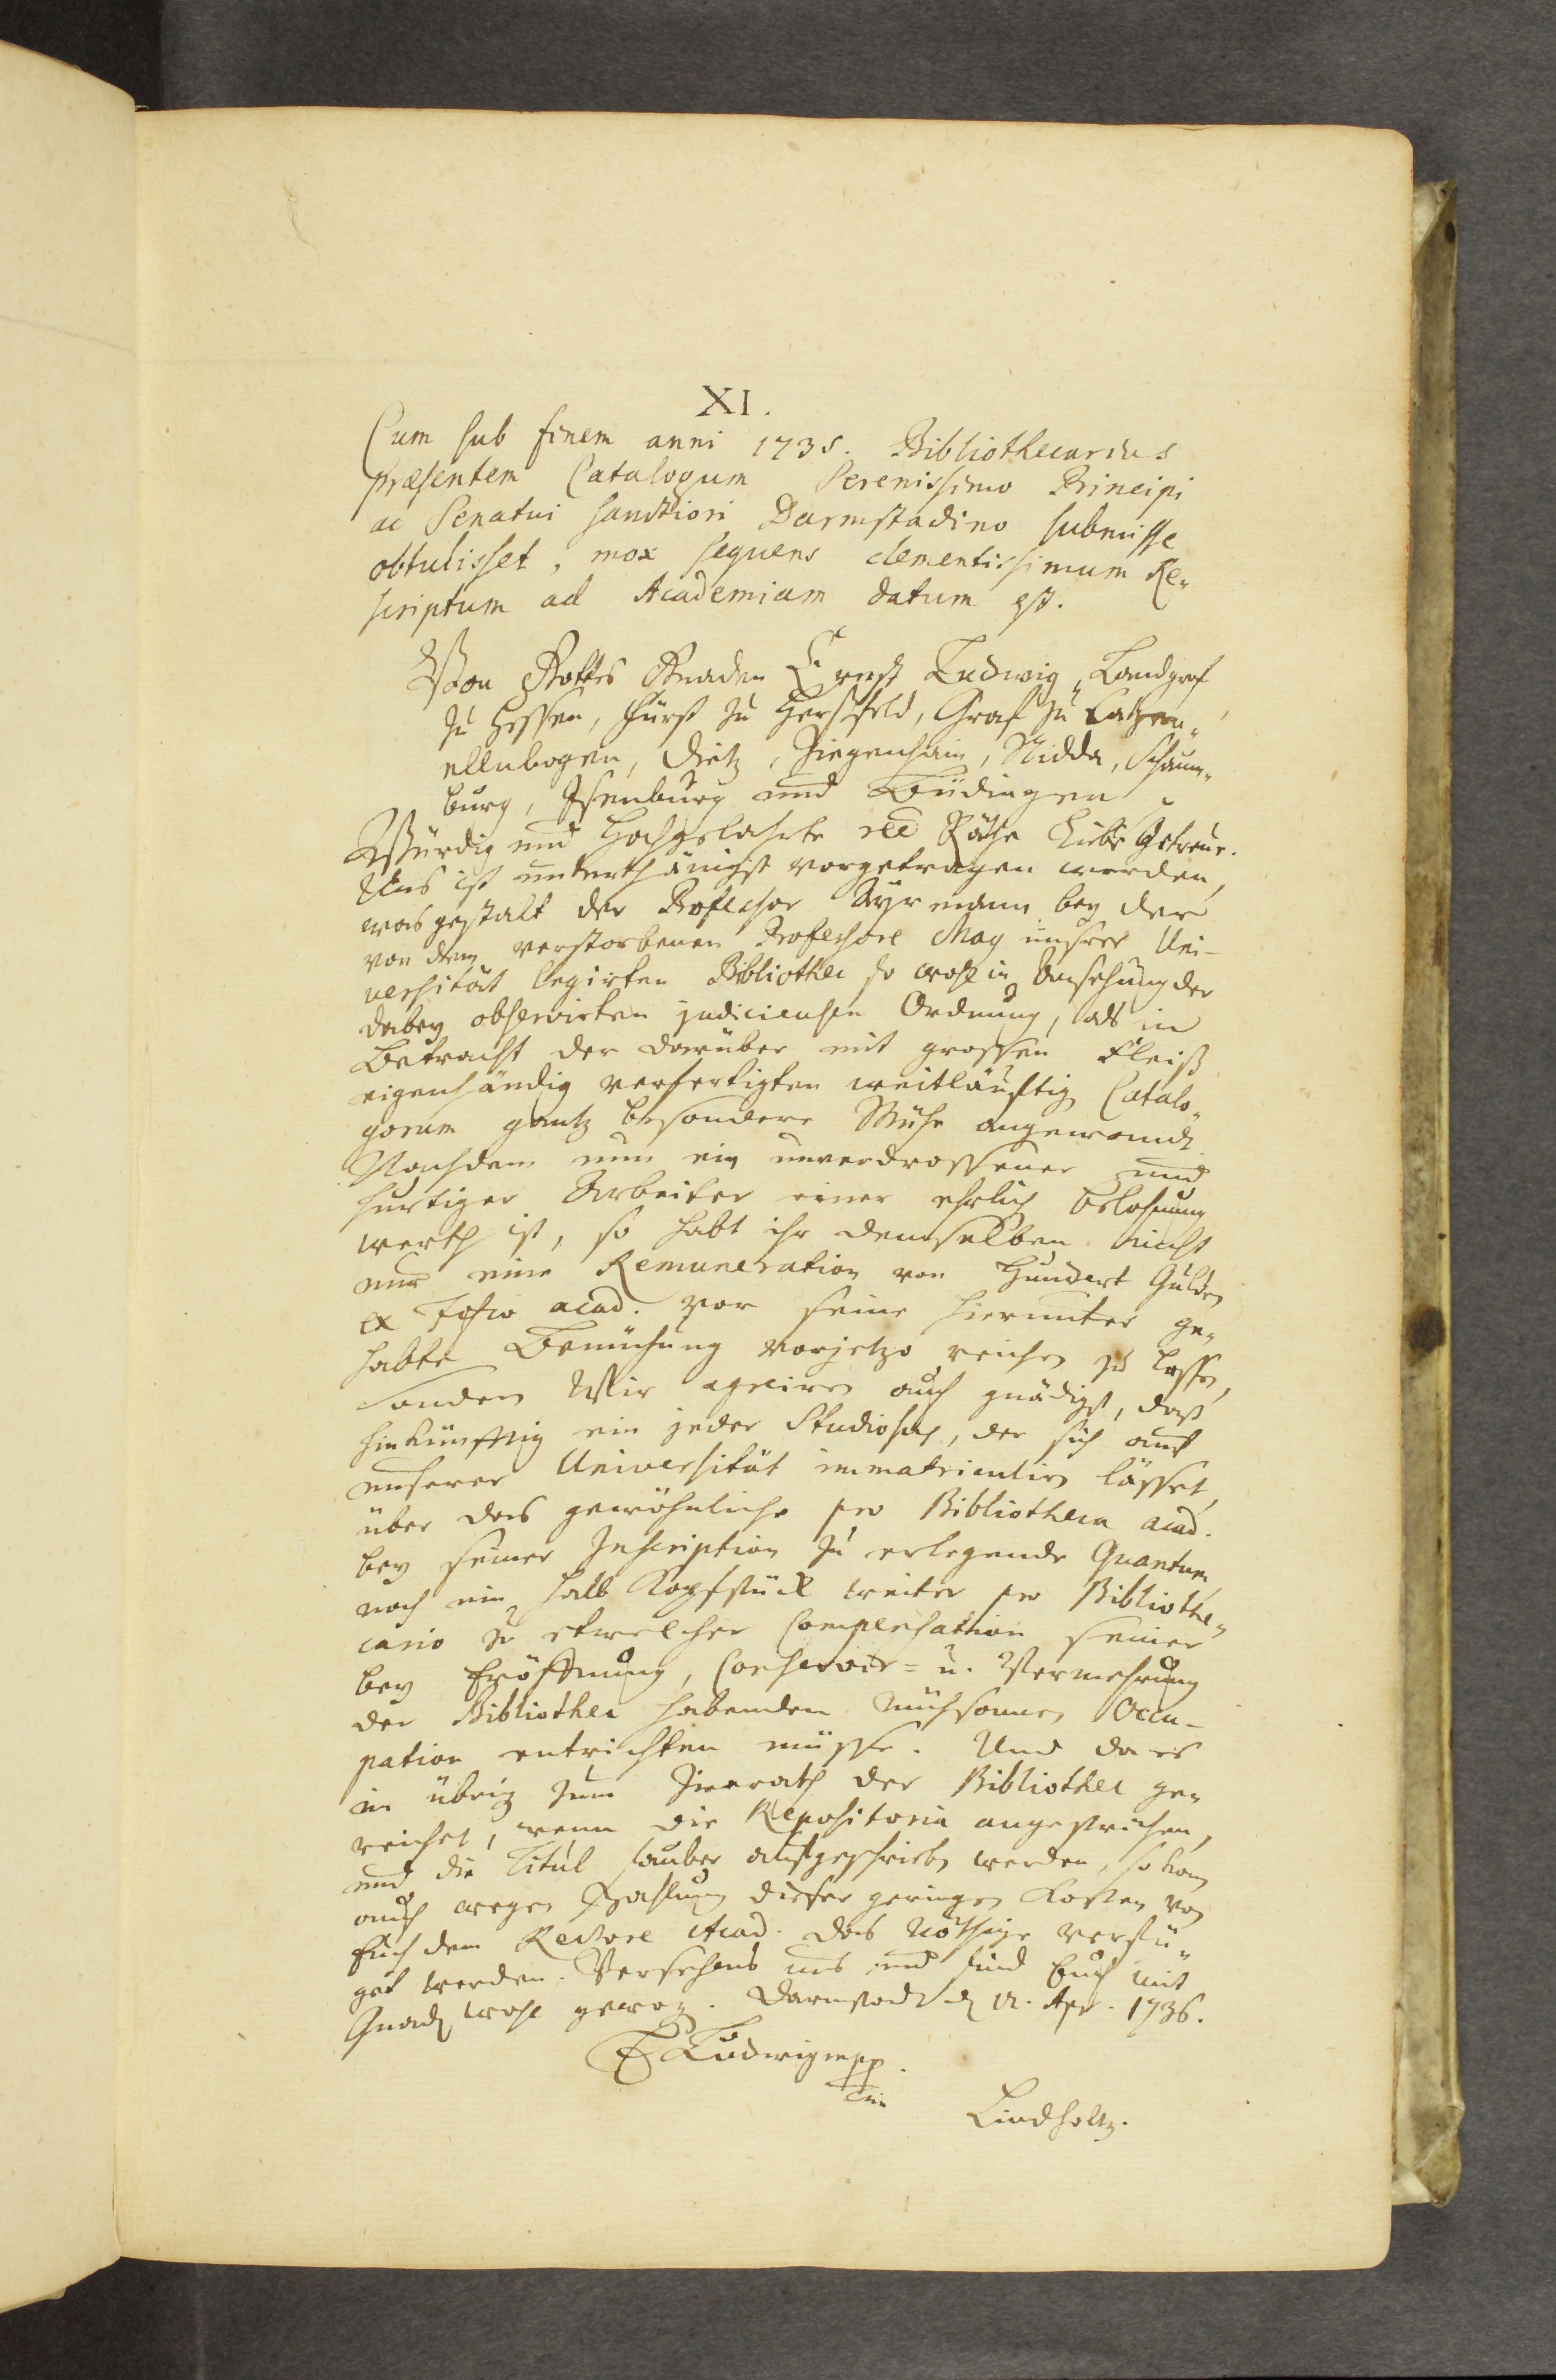 XI.
Cum sub finem anni 1735. Bibliothecarius
præsentem Catalogum Serenissimo Principi
ac Senatui sanctiori Darmstadino submisse
obtulisset, mox sequens clementissimum Re-
scriptum ad Academiam datum est.
Von Gottes Gnaden Ernst Ludwig, Landgraf
zu Hessen, Fürst zu Hersfeld, Graf zu Catzen-
ellnbogen, Dietz, Ziegenhain, Nidda, Schaum-
burg, Isenburg und Büdingen
Würdig und Hochgelahrte Räthe Liebe Getreue.
Uns ist unterthänigst vorgetragen worden,
was gestalt der Professor Ayrmann bey der
von dem verstorbenen Professore May unsrer Uni-
versität legirten Bibliothec so wohl in Ansehung der
dabey observirten judicieusen Ordnung, als in
Betracht der darüber mit grossen Fleiß
eigenhändig verfertigten weitläuftig Catalo-
gorum gantz besondere Mühe angewandt.
Nachdem nun ein unverdrossener und
hurtiger Arbeiter einer ehrlich Belohnung
werth ist, so habt ihr demselben nicht
nur eine Remuneration von Hundert Gulden
ex Fisco acad. vor seine hierunter ge-
habte Bemühung vorjetzo reichen zu lassen,
sondern Wir agreiren auch gnädigst, daß
hinkünfftig ein jeder Studiosus, der sich auf
unserer Universität immatriculiren lässet,
über das gewöhnliche pro Bibliotheca acad.
bey seiner Inscription zu erlegende Quantum
noch ein halb Kopfstück weiter pro Bibliothe-
cario zu etwelcher Compensation seiner
bey Eröffnung, Conservir- u. Vermehrung
der Bibliothec habenden mühsamen Occu-
pation entrichten müsse. Und da es
im übrig zum Zierath der Bibliothec ge-
reichet, wenn die Repositoria angestrichen,
und die Titul sauber aufgeschrieben werden, so kan
auch wegen Zahlung dieser geringen Kosten von
Euch dem Rectore Acad. das nöthige verfü-
get werden. Versehens uns und sind Euch mit
Gnaden wohl gewog. Darmstadt d. 12. Apr. 1736.
E Ludwig mpp.
Lindholtz.